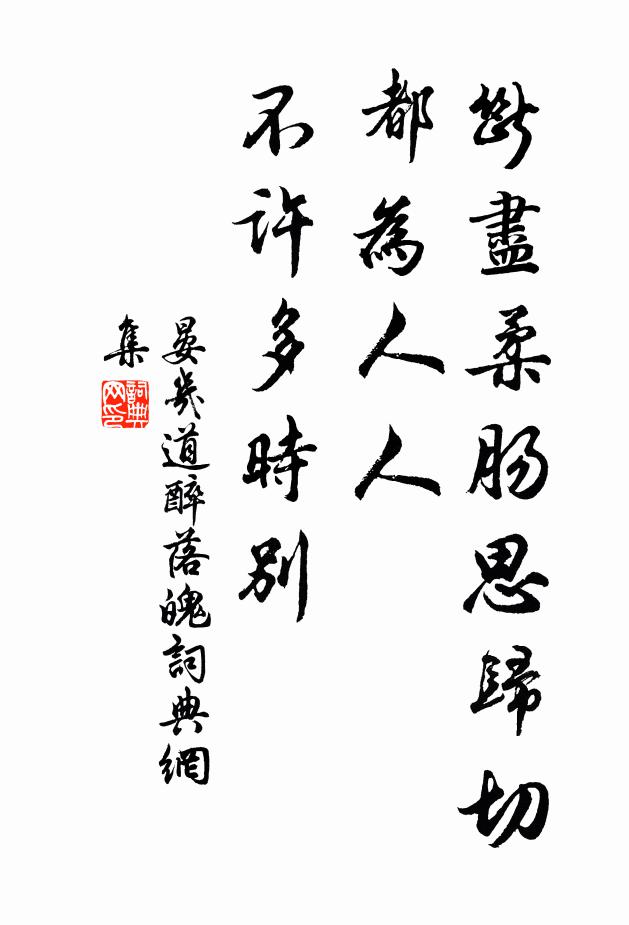 斷盡柔腸思歸切
都為人人
不許多時別
晏幾道醉落魄詞典網
集
詞典
网印